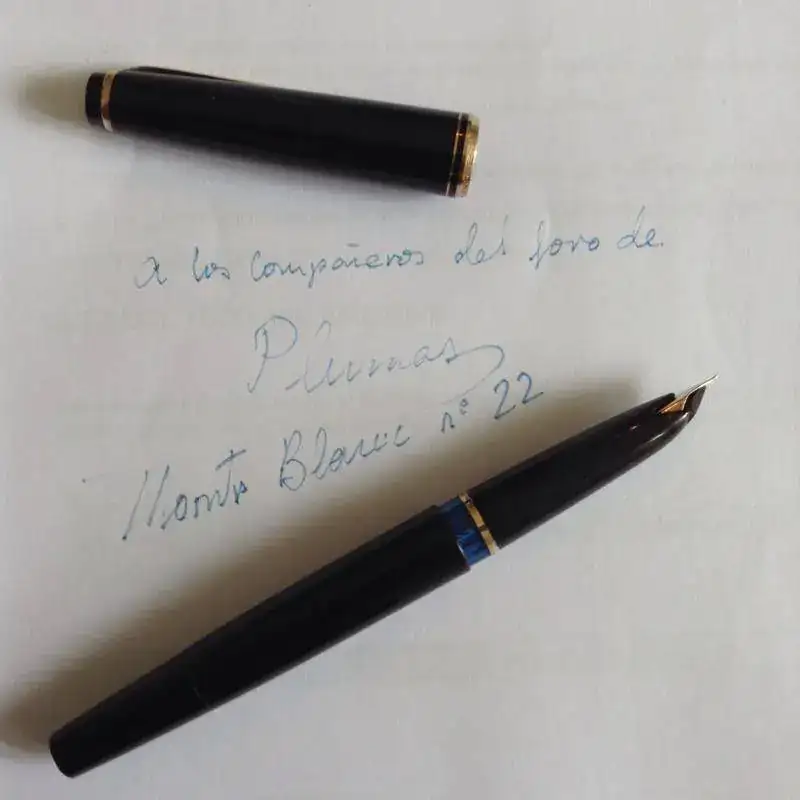 a los compañeros del foro de
Plumas
Monte Blanc nº 22